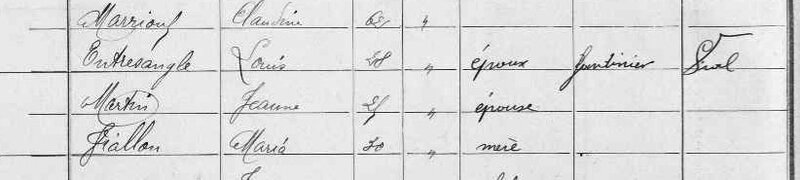 Marziouf Claudine 62 "
Entresangle Louis 28 " époux Jardinier
Martin Jeanne 25 " épouse
Fiallon Maria 50 " mère